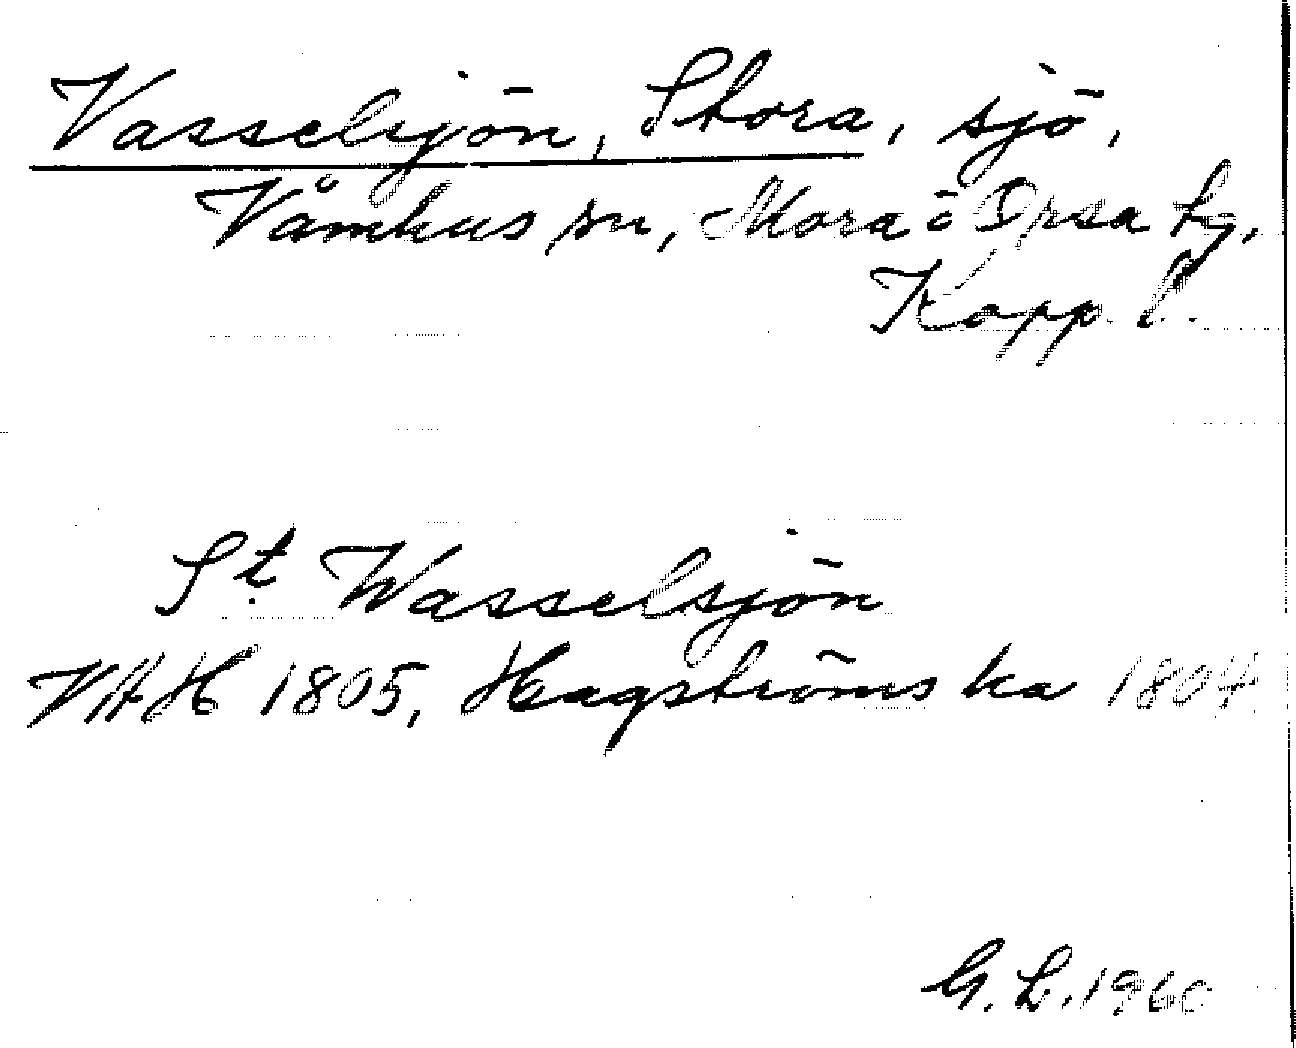 Vasselsjön, Stora, sjö,
Våmhus sn, Mora o Orsa tg,
Kopp. l.
St. Wasselsjön
VAH 1805, Hagströms ka 1804
G. L. 1960